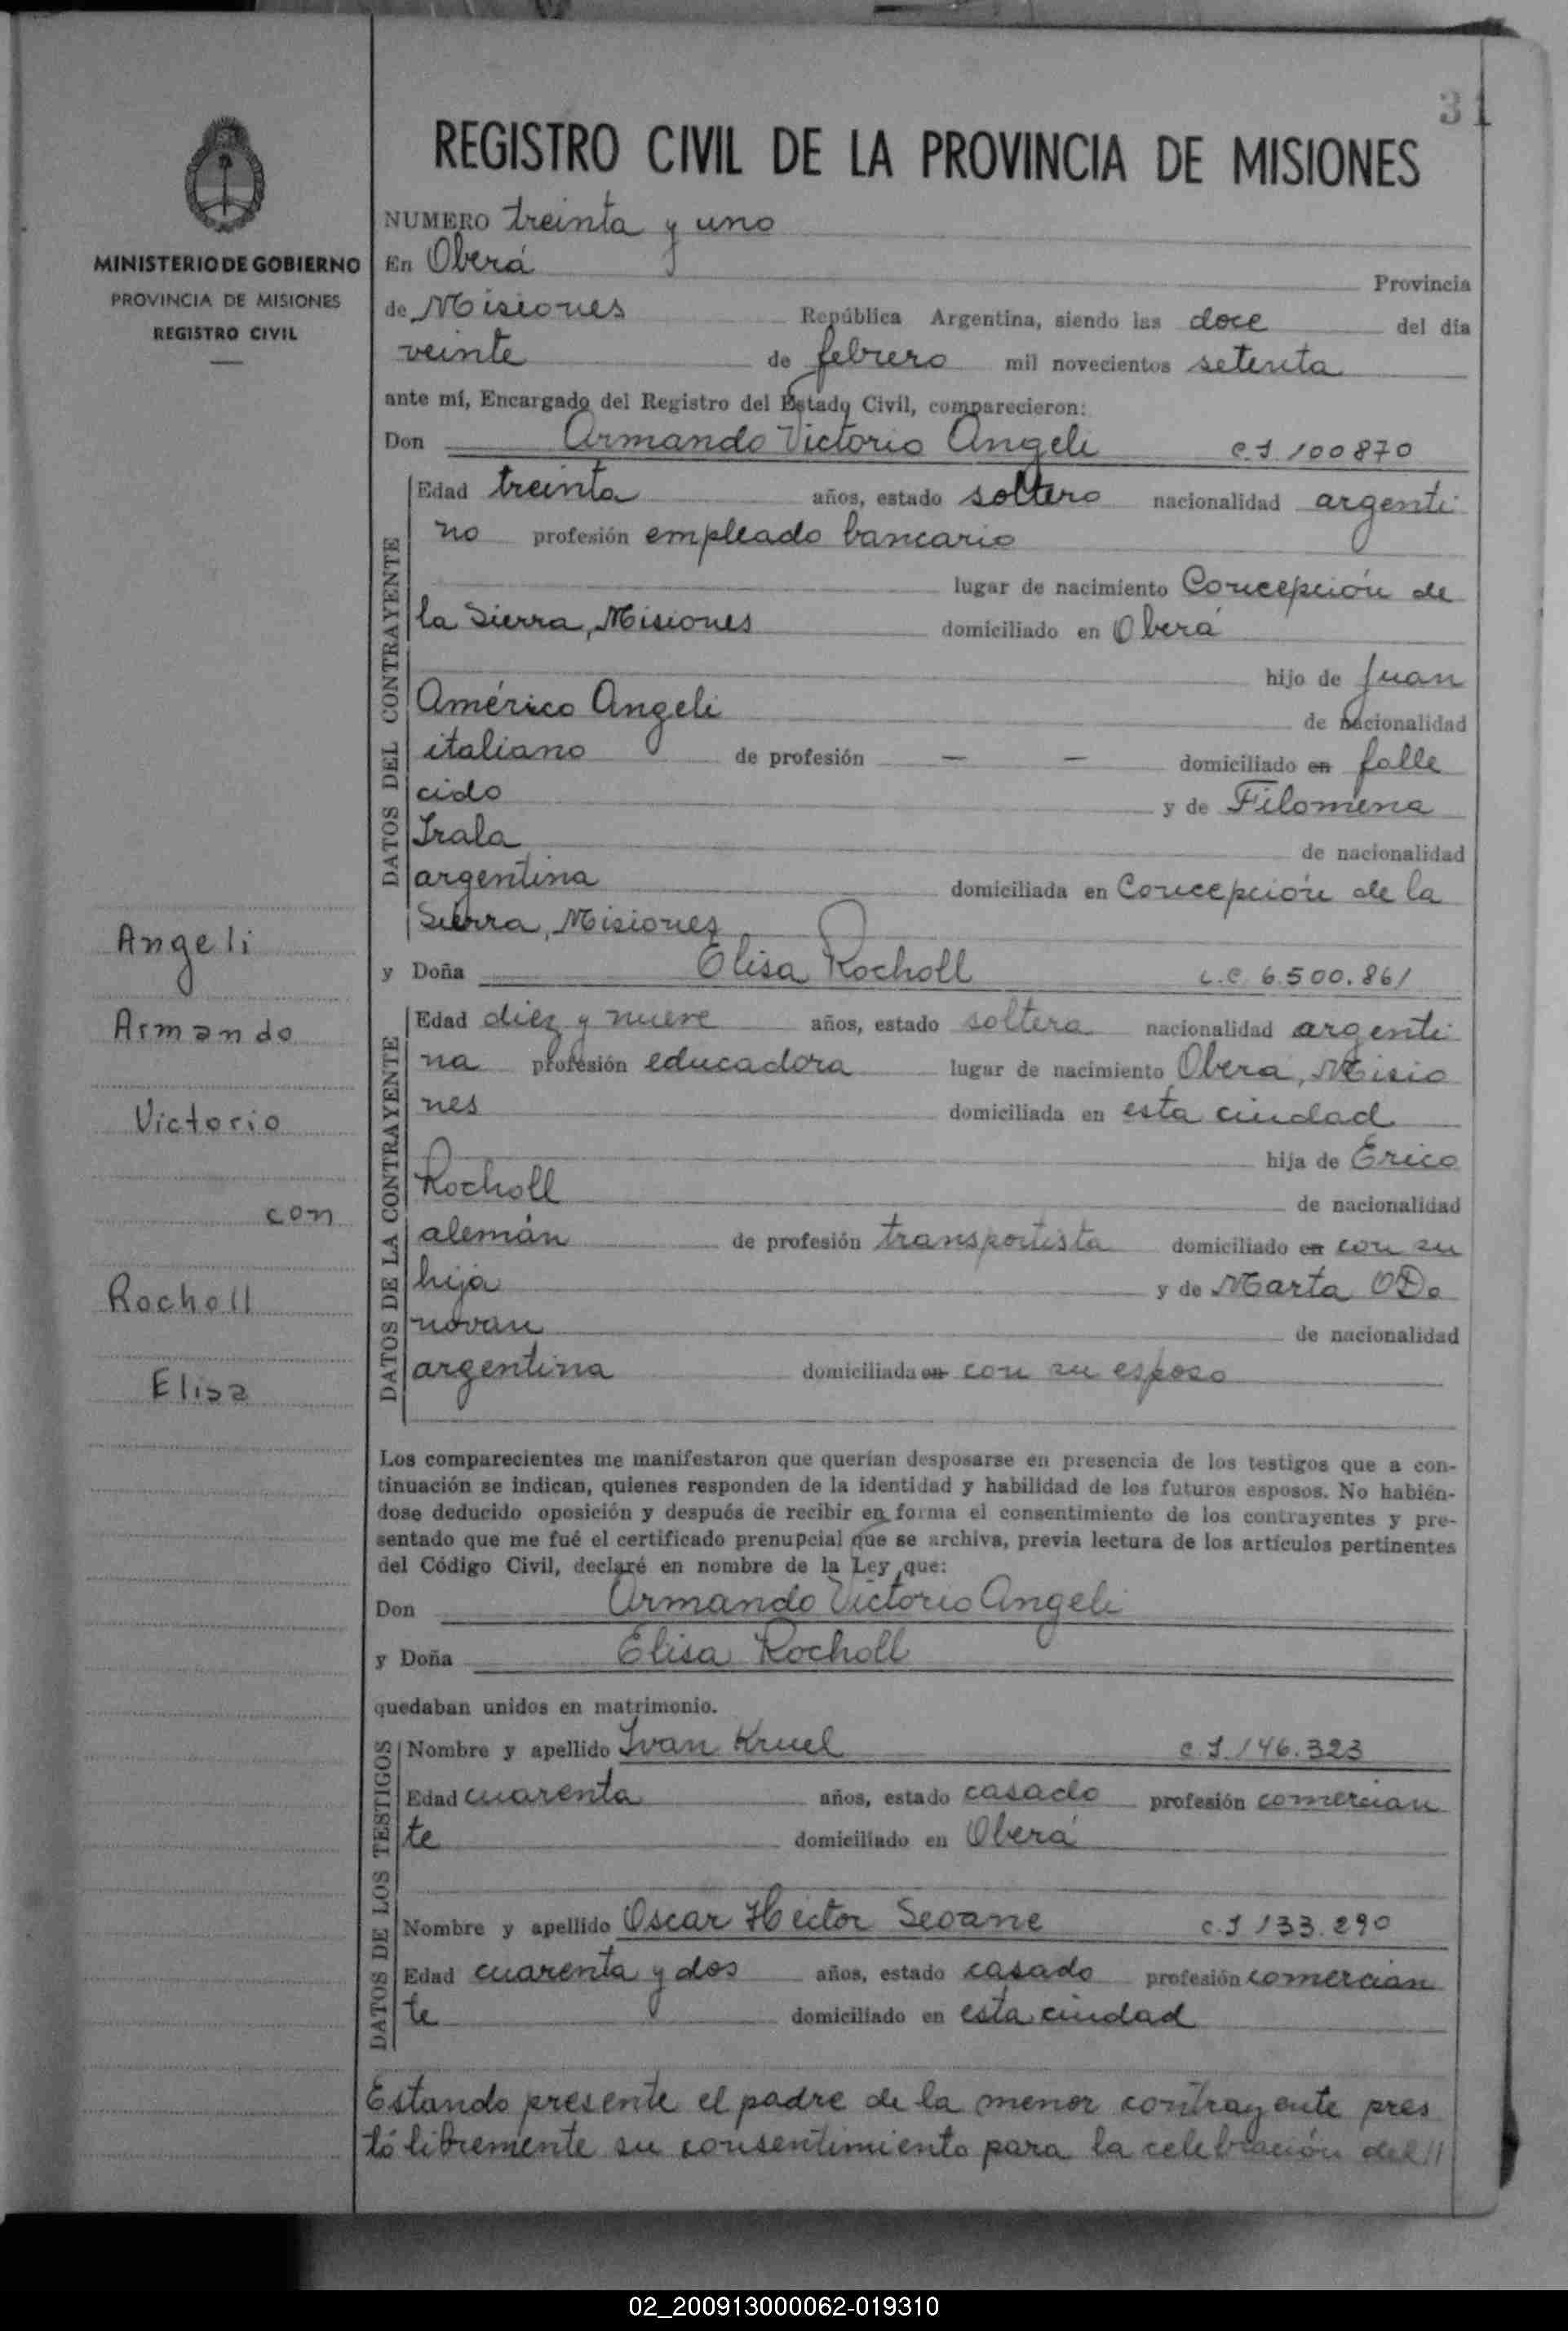 31
REGISTRO CIVIL DE LA PROVINCIA DE MISIONES
MINISTERIO DE GOBIERNO
PROVINCIA DE MISIONES
REGISTRO CIVIL
NUMERO treinta y uno
En Oberá Provincia
de Misiones República Argentina, siendo las doce del día
veinte de febrero mil novecientos setenta
ante mí, Encargado del Registro del Estado Civil, comparecieron:
Don Armando Victorio Angeli C.I. 100870
DATOS DEL CONTRAYENTE
Edad treinta años, estado soltero nacionalidad argenti
no profesión empleado bancario
lugar de nacimiento Concepción de
la Sierra, Misiones domiciliado en Oberá
hijo de Juan
Américo Angeli de nacionalidad
italiano de profesión — — domiciliado en falle
cido y de Filomena
Irala de nacionalidad
argentina domiciliada en Concepción de la
Sierra, Misiones
y Doña Elisa Rocholl L.C. 6.500.861
DATOS DE LA CONTRAYENTE
Edad diez y nueve años, estado soltera nacionalidad argenti
na profesión educadora lugar de nacimiento Oberá, Misio
nes domiciliada en esta ciudad
hija de Erico
Rocholl de nacionalidad
alemán de profesión transportista domiciliado en con su
hija y de Marta O'Do
novan de nacionalidad
argentina domiciliada en con su esposo
Angeli
Armando
Victorio
con
Rocholl
Elisa
Los comparecientes me manifestaron que querían desposarse en presencia de los testigos que a con-
tinuación se indican, quienes responden de la identidad y habilidad de los futuros esposos. No habién-
dose deducido oposición y después de recibir en forma el consentimiento de los contrayentes y pre-
sentado que me fué el certificado prenupcial que se archiva, previa lectura de los artículos pertinentes
del Código Civil, declaré en nombre de la Ley que:
Don Armando Victorio Angeli
y Doña Elisa Rocholl
quedaban unidos en matrimonio.
DATOS DE LOS TESTIGOS
Nombre y apellido Ivan Kruel C.I. 146.323
Edad cuarenta años, estado casado profesión comercian
te domiciliado en Oberá
Nombre y apellido Oscar Hector Seoane C.I 133.290
Edad cuarenta y dos años, estado casado profesión comercian
te domiciliado en esta ciudad
Estando presente el padre de la menor contrayente pres
tó libremente su consentimiento para la celebración del //
02_200913000062-019310